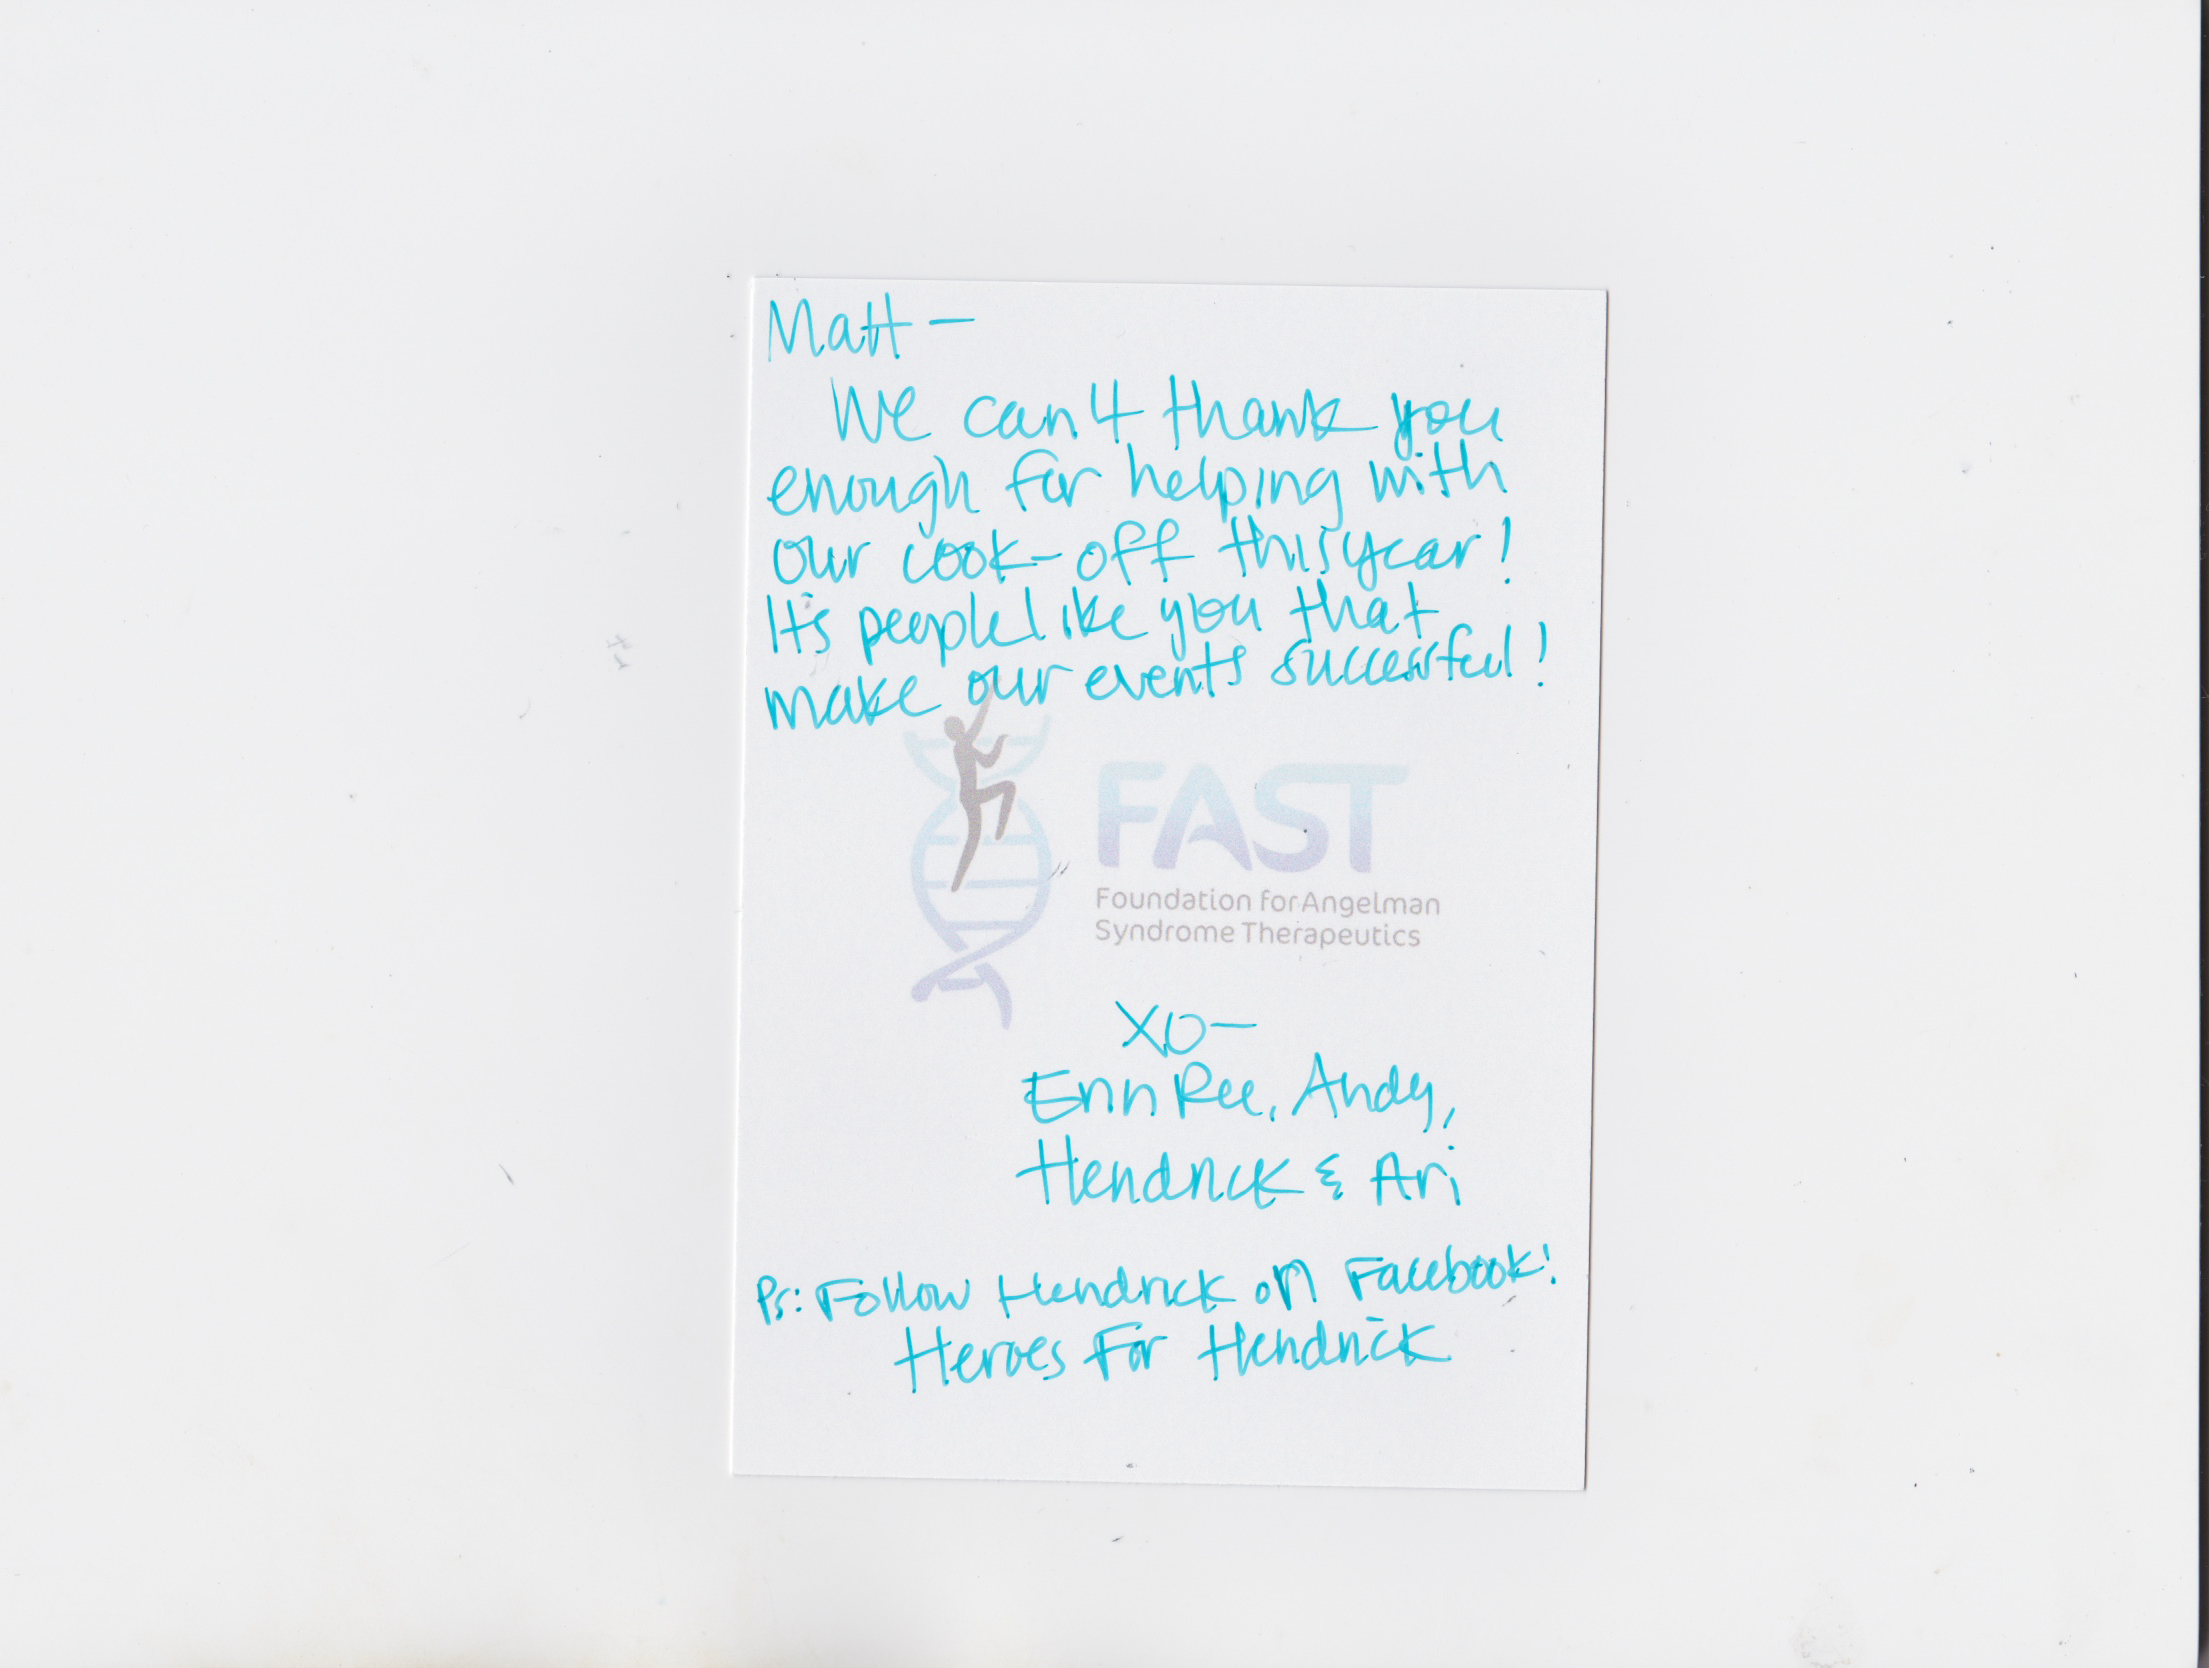 Matt —
We can't thank you
enough for helping with
our cook-off this year!
It's people like you that
make our events successful!
FAST
Foundation for Angelman
Syndrome Therapeutics
XO—
Erin Ree, Andy,
Hendrick & Ari
Ps: Follow Hendrick on Facebook!
Heroes For Hendrick